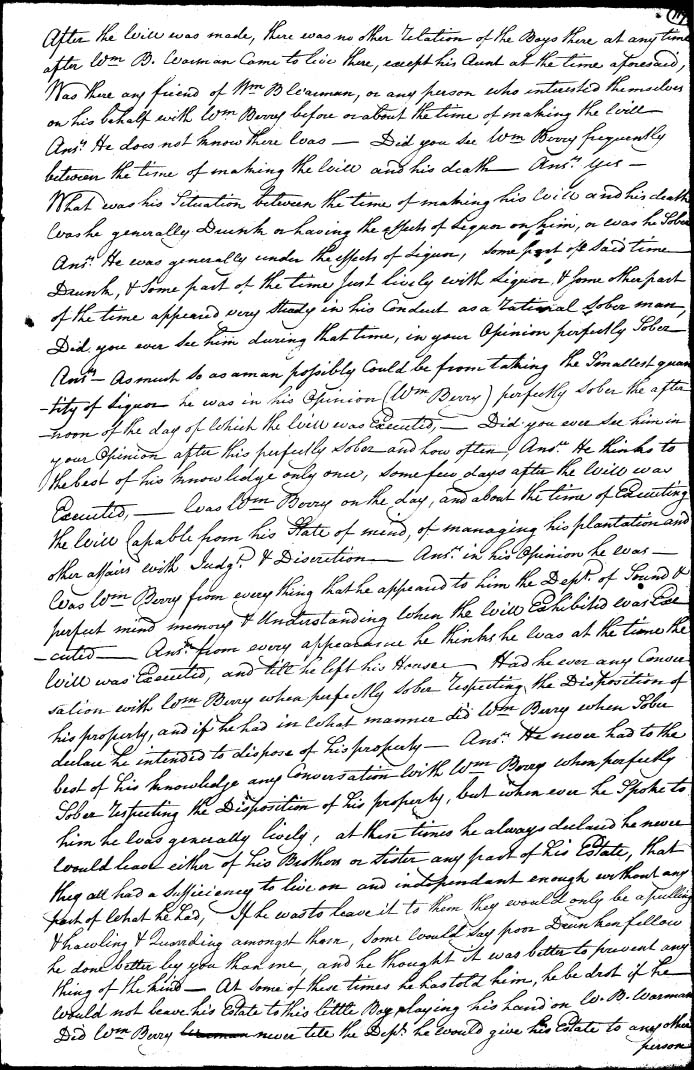 117
After the Will was made, there was no other relation of the Boys there at any time
after Wm B. Warman Came to live there, except his Aunt at the time aforesaid,
Was there any friend of Wm B Warman, or any person who interested themselves
on his behalf with Wm Berry before or about the time of making the Will
Ansr. He does not know there was — Did you see Wm Berry frequently
between the time of making the Will and his death — Ansr. Yes —
What was his Situation between the time of making his Will and his death
Was he generally Drunk or having the affects of Liquor on him, or was he Sober
Ansr. He was generally under the effects of Liquor, some part of sd said time
Drunk, & some part of the time Just lively with Liquor, & some other part
of the time appeared very steady in his Conduct as a rational sober man,
Did you ever see him during that time, in your Opinion perfectly Sober
Ansr — As much so as a man possibly Could be from taking the Smallest quan
-tity of Liquor he was in his Opinion (Wm Berry) perfectly sober the after
-noon of the day of which the Will was Executed, — Did you ever see him in
your Opinion after this perfectly sober and how often, Ansr. He thinks to
the best of his knowledge only once, some few days after the Will was
Executed, — Was Wm Berry on the day, and about the time of Executing
the Will Capable from his State of mind, of managing his plantation and
other affairs with Judgt. & Discretion — Ansr. in his Opinion he was —
Was Wm Berry from every thing that he appeared to him the Dept. of Sound &
perfect mind memory & Understanding when the Will Exhibited was Exe
-cuted — Ansr. from every appearance he thinks he was at the time the
Will was Executed, and till he left his House — Had he ever any Conver
sation with Wm Berry when perfectly sober respecting the Disposition of
his property, and if he had in what manner did Wm Berry when Sober
declare he intended to dispose of his property — Ansr. He never had to the
best of his knowledge any Conversation with Wm Berry when perfectly
Sober respecting the Disposition of his property, but when ever he Spoke to
him he was generally lively, at these times he always declared he never
would leave either of his Brothers or Sister any part of his Estate, that
they all had a sufficiency to live on and independant enough without any
part of what he had, If he was to leave it to them they would only be a pulling
& hawling & Quarreling amongst them, some would say poor Drunken fellow
he done better by you than me, and he thought it was better to prevent any
thing of the kind — At some of these times he has told him, he be drst if he
would not leave his Estate to this little Boy playing his hand on W. B. Warman
Did Wm Berry never tell the Dept. he would give his Estate to any other
person